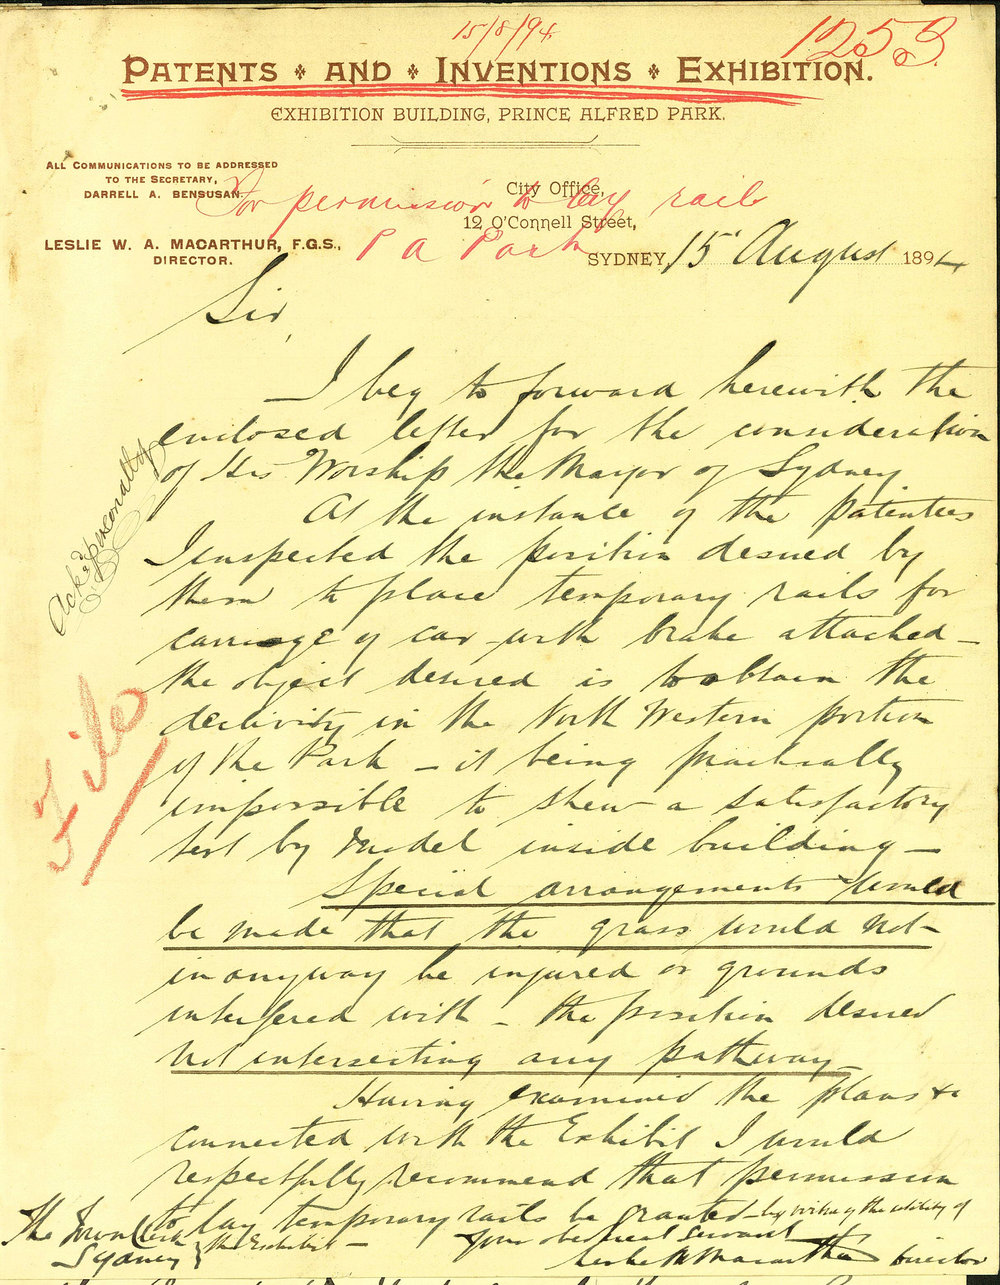 15/8/94
1253
PATENTS AND INVENTIONS EXHIBITION.
EXHIBITION BUILDING, PRINCE ALFRED PARK.
ALL COMMUNICATIONS TO BE ADDRESSED
TO THE SECRETARY,
DARRELL A. BENSUSAN.
City Office,
12 O'Connell Street,
For permission to lay rails
P A Park
LESLIE W. A. MACARTHUR, F.G.S.,
DIRECTOR.
SYDNEY, 15 August 1894
Sir,
I beg to forward herewith the
enclosed letter for the consideration
of His Worship the Mayor of Sydney
At the instance of the patentees
I inspected the position desired by
them to place temporary rails for
carriage of car with brake attached -
the object desired is to obtain the
declivity in the North Western portion
of the Park - it being practically
impossible to shew a satisfactory
test by Model inside building -
Special arrangements would
be made that the grass would not -
in anyway be injured or grounds
interfered with - the position desired
not intersecting any pathway
Having examined the plans &c
connected with the Exhibit I would
respectfully recommend that permission
to lay temporary rails be granted - by virtue of the utility of
the Exhibit -
Your obedient Servant
Leslie W Macarthur Director
The Town Clerk
Sydney
Ackd personally
File